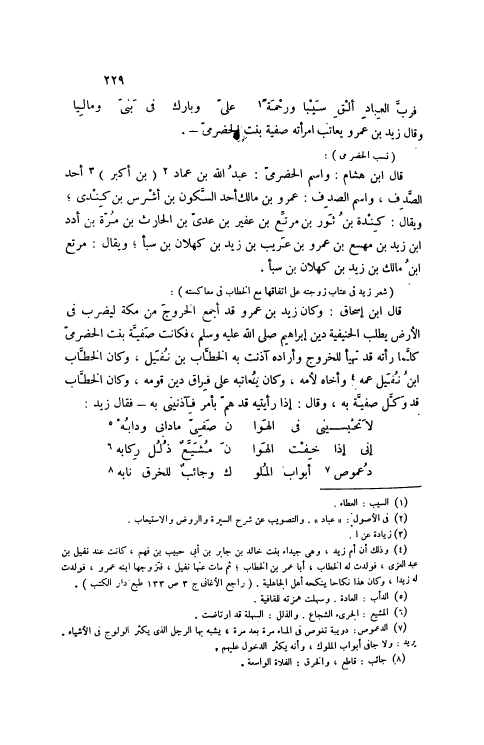 ٢٢٩
فربَّ العباد ألقِ سَيْبا ورحمة ١ علىّ وبارك فى بَنىّ وماليا
وقال زيد بن عمرو يعاتب امرأته صفية بنت الحضرمىّ ــ .
( نسب الحضرمى ) :
قال ابن هشام : واسم الحضرمىّ : عبد ُ الله بن عماد ٢ ( بن أكبر ) ٣ أحد
الصَّدِف ، واسم الصدِف : عمرو بن مالك أحد السَّكون بن أشرس بن كِندى ؛
ويقال : كِنْدة بن ُ ثور بن مرتِّع بن عفير بن عدىّ بن الحارث بن مُرّة بن أدد
ابن زيد بن مهسع بن عمرو بن عَريب بن زيد بن كهلان بن سبأ ؛ ويقال : مرتع
ابن ُ مالك بن زيد بن كهلان بن سبأ .
( شعر زيد فى عتاب زوجته على اتفاقها مع الخطاب فى معاكسته ) :
قال ابن إسحاق : وكان زيد بن عمرو قد أجمع الخروجَ من مكة ليضرب فى
الأرض يطلب الحنيفية دين إبراهيم صلى الله عليه وسلم ، فكانت صَفيَّة بنت الحضرمىّ
كلَّما رأته قد تهيأ للخروج وأراده آذنت به الخطَّاب بن نُفَيل ، وكان الخطَّاب
ابن ُ نُفَيل عمه ٤ وأخاه لأمه ، وكان يُعاتبه على فِراق دين قومه ، وكان الخطَّاب
قد وكَّل صفيَّة به ، وقال : إذا رأيتِيه قد همّ بأمر فآذنينى به ــ فقال زيد :
لا تَحْبسينى فى الهَوا نِ صَفِىَّ مادابى ودابُهْ ٥
إنى إذا خِفْت الهَوا نَ مُشَيَّعٌ ذُلُل ركابه ٦
دُعموص ٧ أبواب المُلو ك وجائبٌ للخرق نابه ٨
(١) السيب : العطاء .
(٢) فى الأصول : « عباد » . والتصويب عن شرح السيرة والروض والاستيعاب .
(٣) زيادة عن ا .
(٤) وذلك أن أم زيد ، وهى جيداء بنت خالد بن جابر بن أبى حبيب بن فهم ، كانت عند نفيل بن
عبد العزى ، فولدت له الخطاب ، أبا عمر بن الخطاب ؛ ثم مات عنها نفيل ، فتزوجها ابنه عمرو ، فولدت
له زيدا ، وكان هذا نكاحا ينكحه أهل الجاهلية . ( راجع الأغانى ج ٣ ص ١٣٣ طبع دار الكتب ) .
(٥) الدأب : العادة . وسهلت همزته للقافية .
(٦) المشيع : الجرىء الشجاع . والذلل : السهلة قد ارتاضت .
(٧) الدعموص : دويبة تغوص فى الماء مرة بعد مرة ؛ يشبه بها الرجل الذى يكثر الولوج فى الأشياء .
يريد : ولاجا فى أبواب الملوك ، وأنه يكثر الدخول عليهم .
(٨) جائب : قاطع ، والخرق : الفلاة الواسعة .